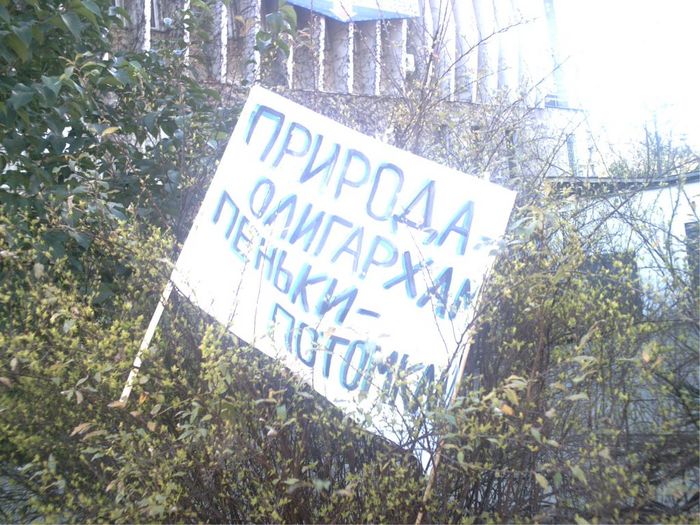 ПРИРОДА -
ОЛИГАРХАМ
ПЕНЬКИ -
ПОТОМКАМ